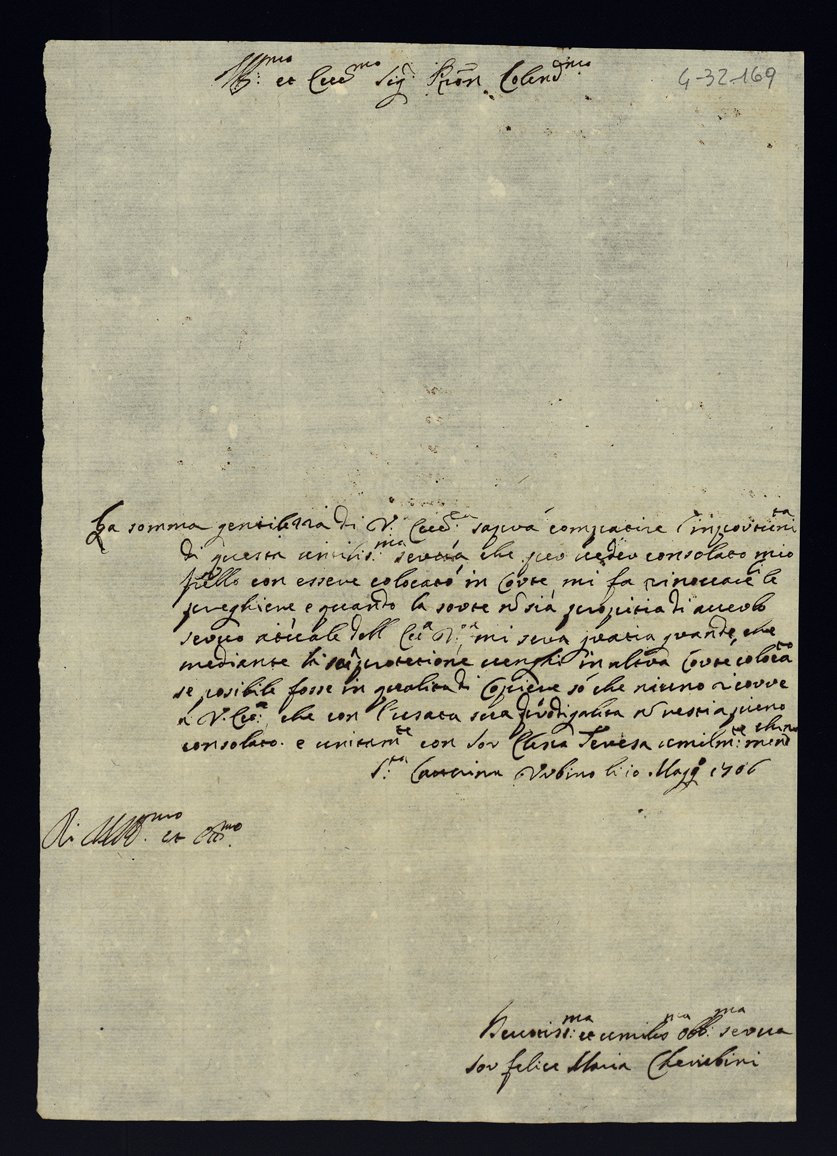 Ill:mo et Ecc:mo Sig: Pron Colend:mo
4-32-169
La somma gentilezza di V. Ecc:za saprà compatire l'inportunita
di questa umilis:ma serva che per veder consolato mio
fr̃ello con essere colocato in Corte mi fa rinovare le
preghiere e quando la sorte nõ sia propitia di averlo
servo atuale dell' Ecc:a V:ra mi sera gratia grande, che
mediante la sua protetione venghi in altra Corte colocato
se posibile fosse in qualita di Copiere so che niuno ricorre
a V. Ecc:a che con l'usata sua prodigalita nõ restia pieno
consolato e unitam:te con Sor Clesia Teresa umilm:te
S:ta Catterina Urbino li 10 Magg:o 1706
Di V. Ill:mo et Ecc:mo
Devotiss:ma et umilis:ma obb:ma serva
Sor felice Maria Cherubini